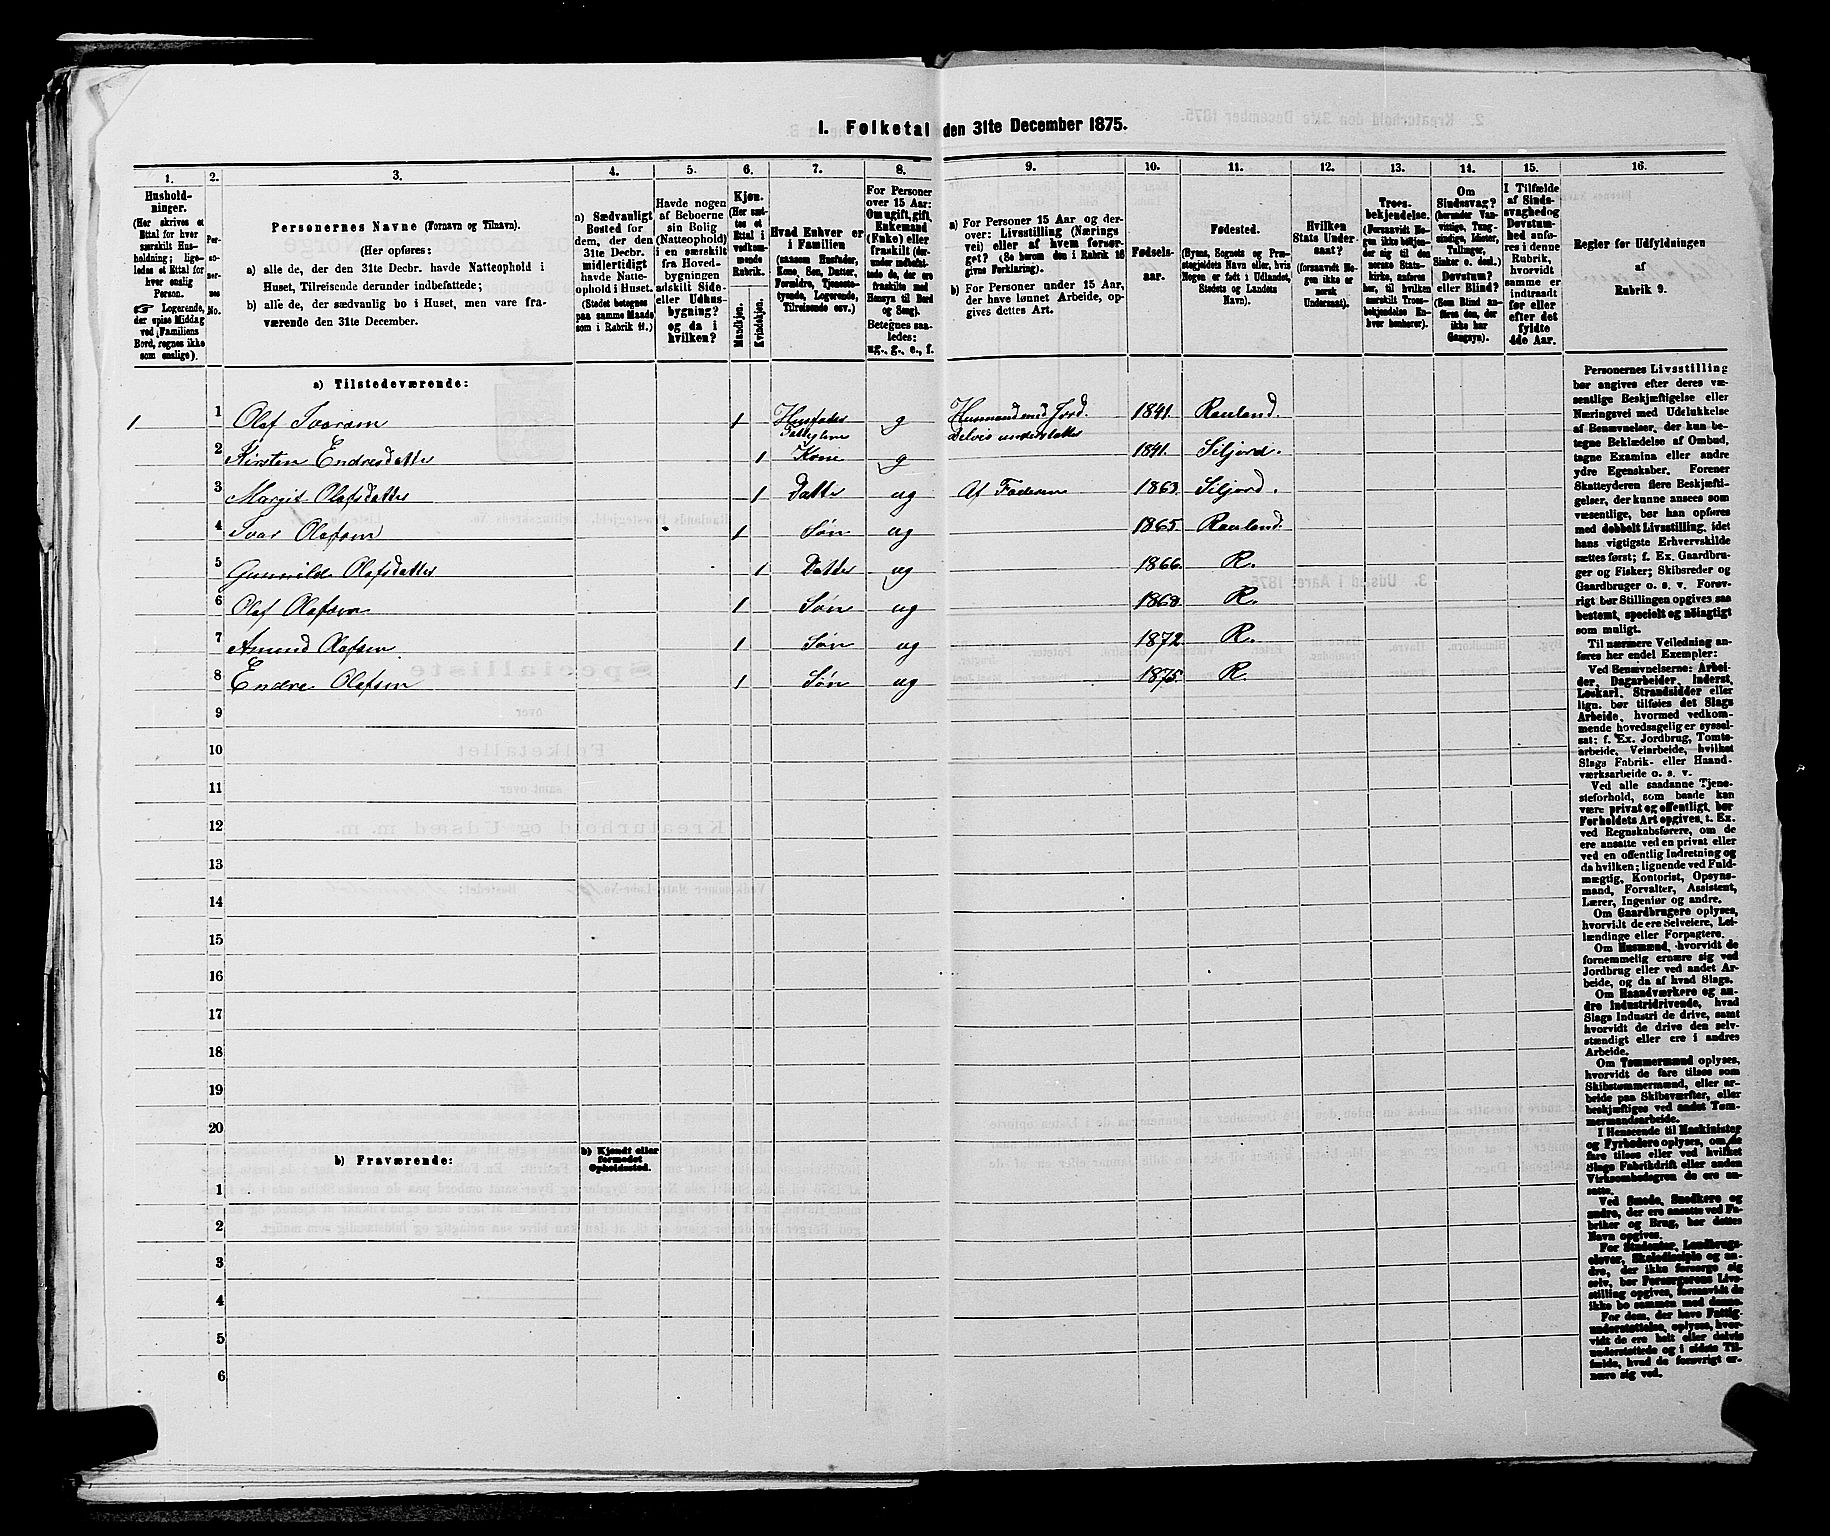 1. Folketal den 31te December 1875.
1. 2. 3. 4. 5. 6. 7. 8. 9. 10. 11. 12. 13. 14. 15. 16.
Husholdninger.
(Her skrives et
Ettal for hver
særskilt Hus-
holdning; lige-
ledes et Ettal for
hver enslig
Person.
☞ Logerende,
der spise Middag
ved Familiens
Bord, regnes ikke
som enslige).
Personernes No.
Personernes Navne (Fornavn og Tilnavn).
(Her opføres:
a) alle de, der den 31te Decbr. havde Natteophold i
Huset, Tilreisende derunder indbefattede;
b) alle de, der sædvanlig bo i Huset, men vare fra-
værende den 31te December.
a) Sædvanligt
Bosted for
dem, der den
31te Decbr.
midlertidigt
havde Natte-
ophold i Huset.
(Stedet betegnes
paa samme Maade
som i Rubrik 11.)
Havde nogen
af Beboerne
sin Bolig
(Natteophold)
i en særskilt
fra Hoved-
bygningen
adskilt Side-
eller Udhus-
bygning?
og da i
hvilken?
Kjøn.
(Her sæt-
tes et
Ettal i
vedkom-
mende
Rubrik.
Mandkjøn.
Kvindekjøn.
Hvad Enhver er
i Familien
(saasom Husfader,
Kone, Søn, Datter,
Forældre, Tjeneste-
tyende, Logerende,
Tilreisende osv.)
For Personer
over 15 Aar:
Om ugift, gift,
Enkemand
(Enke) eller
fraskilt
Betegnes saa-
ledes:
ug., g., e., f.
a) For Personer 15 Aar og der-
over: Livsstilling (Nærings
vei) eller af hvem forsør-
get? (Se herom den i Rubrik 16
givne Forklaring).
b) For Personer under 15 Aar,
der have lønnet Arbeide, op-
gives dettes Art.
Fødsels-
aar.
Fødested.
(Byens, Sognets og Præ-
stegjeldets Navn eller, hvis
Nogen er født i Udlandet,
Stedets og Landets
Navn).
Hvilken
Stats Under-
saat?
(forsaavidt No-
gen ikke er
norsk
Undersaat).
Troes-
bekjendelse.
(Forsaavidt No-
gen ikke bekjen-
der sig til den
norske Stats-
kirke, anføres
her, til hvilken
særskilt Troes-
bekjendelse En-
hver henhører).
Om
Sindssvag?
(herunder Van-
vittige, Tung-
sindige, Idioter,
Tullinger,
Sinker o. desl.)
Døvstum?
eller Blind?
(Som Blind an-
føres den, der
ikke har
Gangsyn).
I Tilfælde
af Sinds-
svaghed og
Døvstum-
hed anfø-
res i denne
Rubrik,
hvorvidt
samme er
indtraadt
før eller
efter det
fyldte
4de Aar.
Regler for Udfyldningen
af
Rubrik 9.
a) Tilstedeværende:
1 1 Olaf Ivarsen 1 Husfader g Husmand med Jord. 1841. Rauland.
Delvis understøttet
2 Kirsten Endresdatter 1 Kone g 1841. Siljord.
3 Margit Olafsdatter 1 Datter ug Af Faderen 1863. Siljord.
4 Ivar Olafsen 1 Søn ug 1865. Rauland.
5 Gunnilde Olafsdatter 1 Datter ug 1866. R.
6 Olaf Olafsen 1 Søn ug 1868. R.
7 Amund Olafsen 1 Søn ug 1872. R.
8 Endre Olafsen 1 Søn ug 1875. R.
9
10
11
12
13
14
15
16
17
18
19
20
b) Fraværende:
b) Kjendt eller
formodet
Opholdssted.
1
2
3
4
5
6
Personernes Livsstilling
bør angives efter deres væ-
sentlige Beskjæftigelse eller
Næringsvei med Udelukkelse
af Benævnelser, der kun be-
tegne Beklædelse af Ombud,
tagne Examina eller andre
ydre Egenskaber. Forener
Skatteyderen flere Beskjæfti-
gelser, der kunne ansees som
væsentlige, bør han opføres
med dobbelt Livsstilling, idet
hans vigtigste Erhvervskilde
sættes først; f. Ex. Gaardbru-
ger og Fisker; Skibsreder og
Gaardbruger o. s. v. Forøv-
rigt bør Stillingen opgives saa
bestemt, specielt og nøiagtigt
som muligt.
Til nærmere Veiledning an-
føres her endel Exempler:
Ved Benævnelserne: Arbei-
der, Dagarbeider, Inderst,
Løskarl, Strandsidder eller
lign. bør tilføies det Slags
Arbeide, hvormed vedkom-
mende hovedsagelig er syssel-
sat; f. Ex. Jordbrug, Tomte-
arbeide, Veiarbeide, hvilket
Slags Fabrik- eller Haand-
værksarbeide o. s. v.
Ved alle saadanne Tjene-
steforhold, som baade kan
være privat og offentligt, bør
Forholdets Art opgives, t. Ex.
ved Regnskabsførere, om de
ere ansatte ved en privat eller
ved en offentlig Indretning og
da hvilken; lignende ved Fuld-
mægtig, Kontorist, Opsyns-
mand, Forvalter, Assistent,
Lærer, Ingeniør og andre.
Om Gaardbrugere oplyses,
hvorvidt de ere Selveiere, Lei-
lændinge eller Forpagtere.
Om Husmænd, hvorvidt de
fornemmelig ernære sig ved
Jordbrug eller ved andet Ar-
beide, og da af hvad Slags.
Om Haandværkere og an-
dre Industridrivende, hvad
Slags Industri de drive, samt
hvorvidt de drive den selv-
stændigt eller ere i andres
Arbeide.
Om Tømmermænd oplyses,
hvorvidt de fare tilsøs som
Skibstømmermænd, eller ar-
beide paa Skibsværfter, eller
beskjæftiges ved andet Tøm-
mermandsarbeide.
I Henseende til Maskinister
og Fyrbødere oplyses, om de
fare tilsøs eller ved hvilket
Slags Fabrikdrift eller anden
Virksomhedsgren de ere an-
satte.
Ved Smede, Snedkere og
andre, der ere ansatte ved Fa-
briker og Brug, bør dettes
Navn opgives.
For Studenter, Landbrugs-
elever, Skoledisciple og an-
dre, der ikke forsørge sig
selv, bør Forsørgerens Livs-
stilling opgives, forsaavidt de
ikke bo sammen med denne.
For dem, der have Fattig-
understøttelse, oplyses, hvor-
vidt de ere helt eller delvis
understøttede og i sidste Til-
fælde, hvad de forøvrigt er-
nære sig ved.